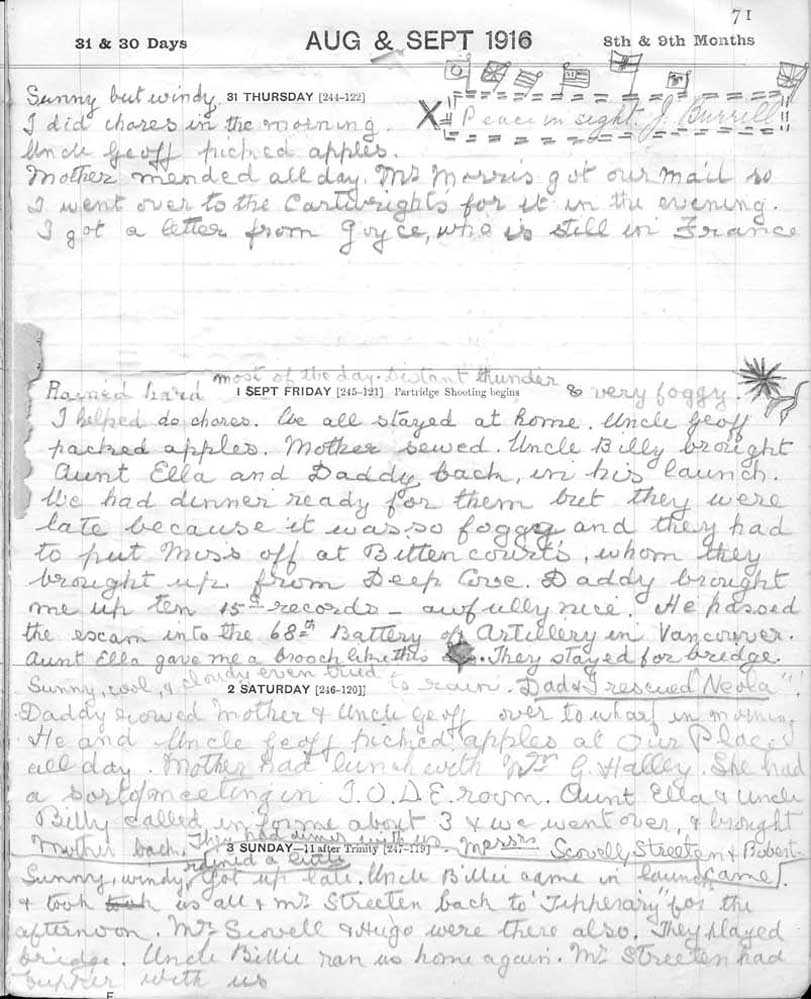 71
31 & 30 Days AUG & SEPT 1916 8th & 9th Months
Sunny but windy. 31 THURSDAY [244-122]
I did chores in the morning. X Peace in sight. J. Burrill!!
Uncle Geoff picked apples.
Mother mended all day. Mr Morris got our mail so
I went over to the Cartwrights for it in the evening.
I got a letter from Joyce, who is still in France
most of the day. Distant thunder
Rained hard 1 SEPT FRIDAY [245-121] Partridge Shooting begins & very foggy.
I helped do chores. We all stayed at home. Uncle Geoff
packed apples. Mother sewed. Uncle Billy brought
Aunt Ella and Daddy back, in his launch.
We had dinner ready for them but they were
late because it was so foggy and they had
to put Miss off at Bittencourts, whom they
brought up from Deep Cove. Daddy brought
me up ten 15c records - awfully nice. He passed
the escam into the 68th Battery of Artillery in Vancouver.
Aunt Ella gave me a brooch like this. They stayed for bridge.
cloudy even tried
Sunny, cool, & 2 SATURDAY [246-120] to rain. Dad & I rescued "Neola"!
Daddy rowed Mother & Uncle Geoff over to wharf in morning
He and Uncle Geoff picked apples at Our Place
all day. Mother had lunch with Mrs G. Halley. She had
a sort of meeting in I.O.D.E. room. Aunt Ella & Uncle
Billy called in for me about 3 & we went over, & brought
Mother back. They had dinner with us. Messrs Scovell, Streeten & Robert-
3 SUNDAY—11 after Trinity [247-119]
rained a little
Sunny, windy, Got up late. Uncle Billie came in launch came.
& took us all & Mr Streeten back to "Tipperary" for the
afternoon. Mr Scovell & Hugo were there also. They played
bridge. Uncle Billie ran us home again. Mr Streeten had
supper with us
F